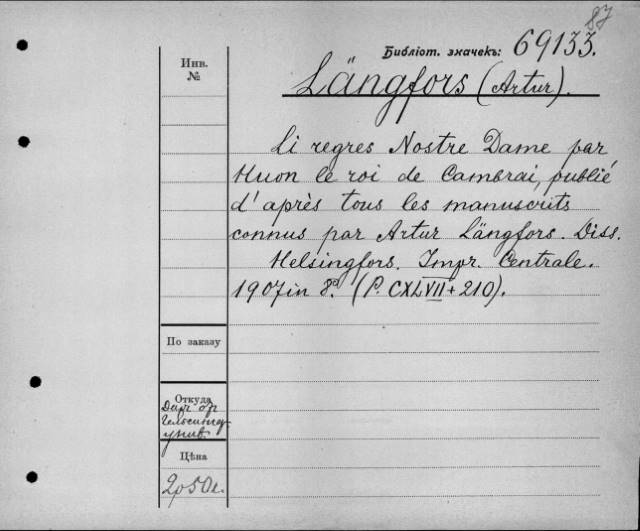 87
Библіот. значекъ: 69133.
Инв.
№
Längfors (Artur).
Li regres Nostre Dame par
Huon le roi de Cambrai, publié
d'après tous les manuscrits
connus par Artur Längfors. Diss.
Helsingfors. Impr. Centrale.
1907 in 8º. (P. CXLVII + 210).
По заказу
Откуда
Даръ от
Гельсингф
унив.
Цѣна
2р50к.